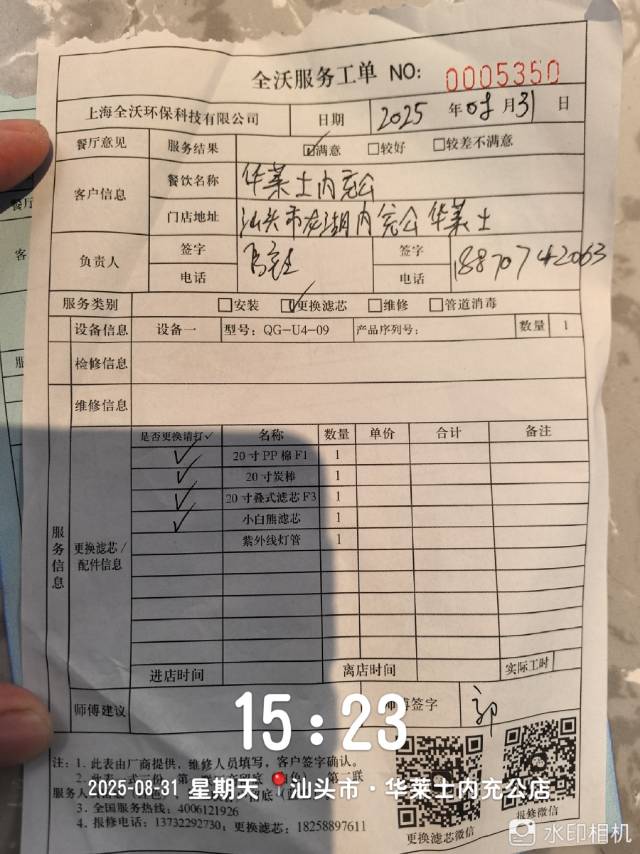 全沃服务工单 NO: 0005350
上海全沃环保科技有限公司 日期 2025 年 08 月 31 日
餐厅意见 服务结果 ☑满意 □较好 □较差不满意
客户信息 餐饮名称 华莱士内充公
门店地址 汕头市龙湖内充公华莱士
负责人 签字 签字
电话 电话 18870742063
服务类别 □安装 ☑更换滤芯 □维修 □管道消毒
设备信息 设备一 型号: QG-U4-09 产品序列号: 数量 1
检修信息
维修信息
服务信息
更换滤芯/配件信息
是否更换请打√ 名称 数量 单价 合计 备注
✓ 20寸PP棉F1 1
✓ 20寸炭棒 1
✓ 20寸叠式滤芯F3 1
✓ 小白熊滤芯 1
紫外线灯管 1
进店时间 离店时间 实际工时
师傅建议 师傅签字 郭
15:23
注: 1. 此表由厂商提供, 维修人员填写, 客户签字确认。
2025-08-31 星期天 汕头市·华莱士内充公店
3. 全国服务热线: 4006121926
4. 报修电话: 13732292730; 更换滤芯: 18258897611
更换滤芯微信
报修微信
水印相机